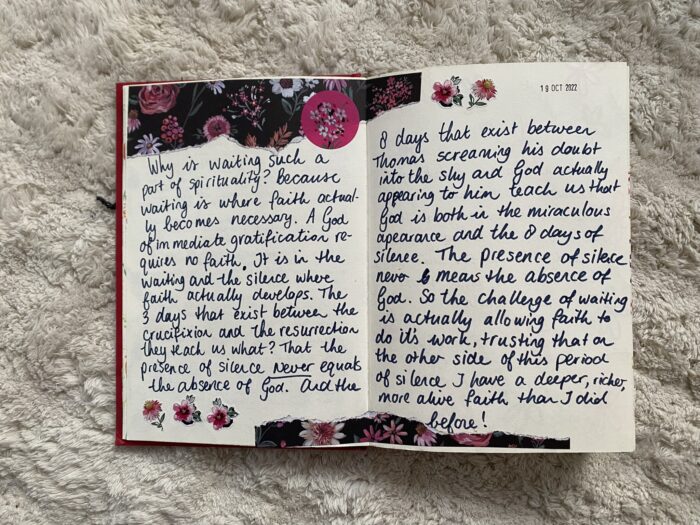 Why is waiting such a
part of spirituality? Because
waiting is where faith actual-
ly becomes necessary. A God
of immediate gratification re-
quires no faith. It is in the
waiting and the silence where
faith actually develops. The
3 days that exist between the
crucifixion and the resurrection
they teach us what? That the
presence of silence never equals
the absence of God. And the
19 OCT 2022
8 days that exist between
Thomas screaming his doubt
into the sky and God actually
appearing to him teach us that
God is both in the miraculous
apearance and the 8 days of
silence. The presence of silence
never means the absence of
God. So the challenge of waiting
is actually allowing faith to
do it's work, trusting that on
the other side of this period
of silence I have a deeper, richer,
more alive faith than I did
before!